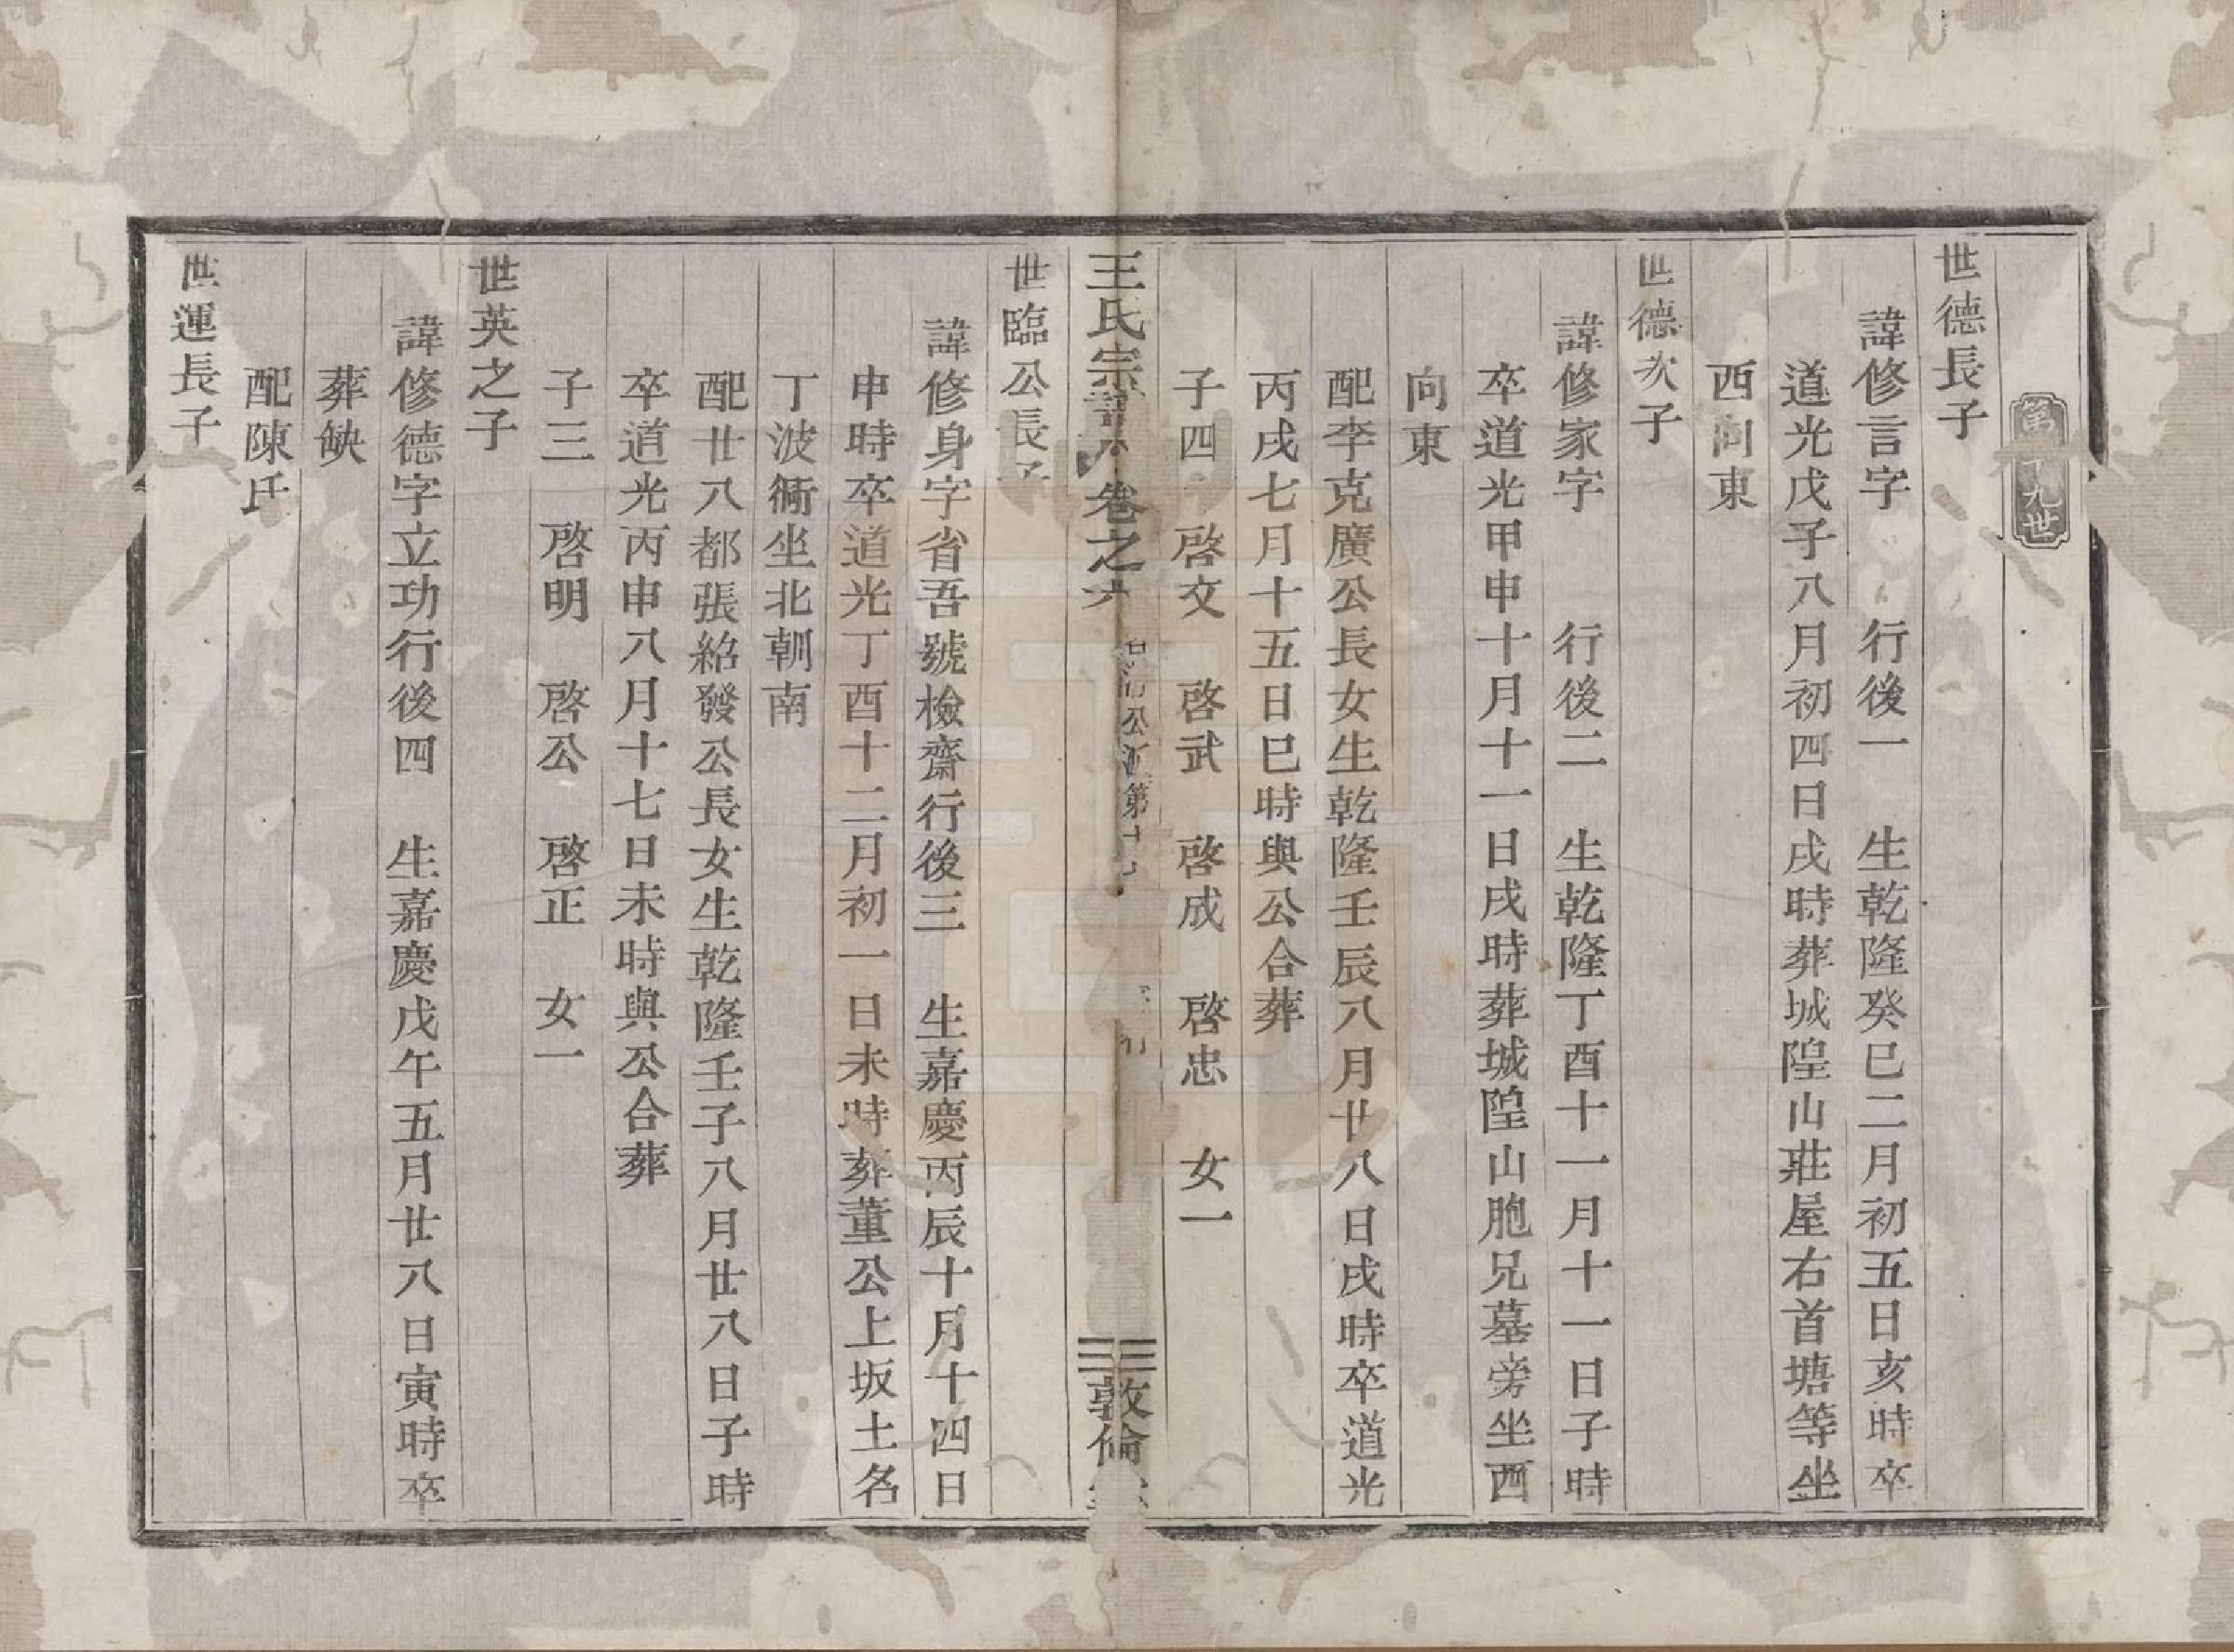 第十九世
世德長子
諱修言字 行後一 生乾隆癸巳二月初五日亥時卒
道光戊子八月初四日戌時葬城隍山莊屋右首塘等坐
西向東
世德次子
諱修家字 行後二 生乾隆丁酉十一月十一日子時
卒道光甲申十月十一日戌時葬城隍山胞兄墓旁坐西
向東
配李克廣公長女生乾隆壬辰八月廿八日戌時卒道光
丙戌七月十五日巳時與公合葬
子四 啓文 啓武 啓成 啓忠 女一
王氏宗譜 卷之六 公派第十 敦倫
世臨公長子
諱修身字省吾號檢齋行後三 生嘉慶丙辰十月十四日
申時卒道光丁酉十二月初一日未時葬董公上坂土名
丁波衕坐北朝南
配廿八都張紹發公長女生乾隆壬子八月廿八日子時
卒道光丙申八月十七日未時與公合葬
子三 啓明 啓公 啓正 女一
世英之子
諱修德字立功行後四 生嘉慶戊午五月廿八日寅時卒
葬缺
配陳氏
世運長子